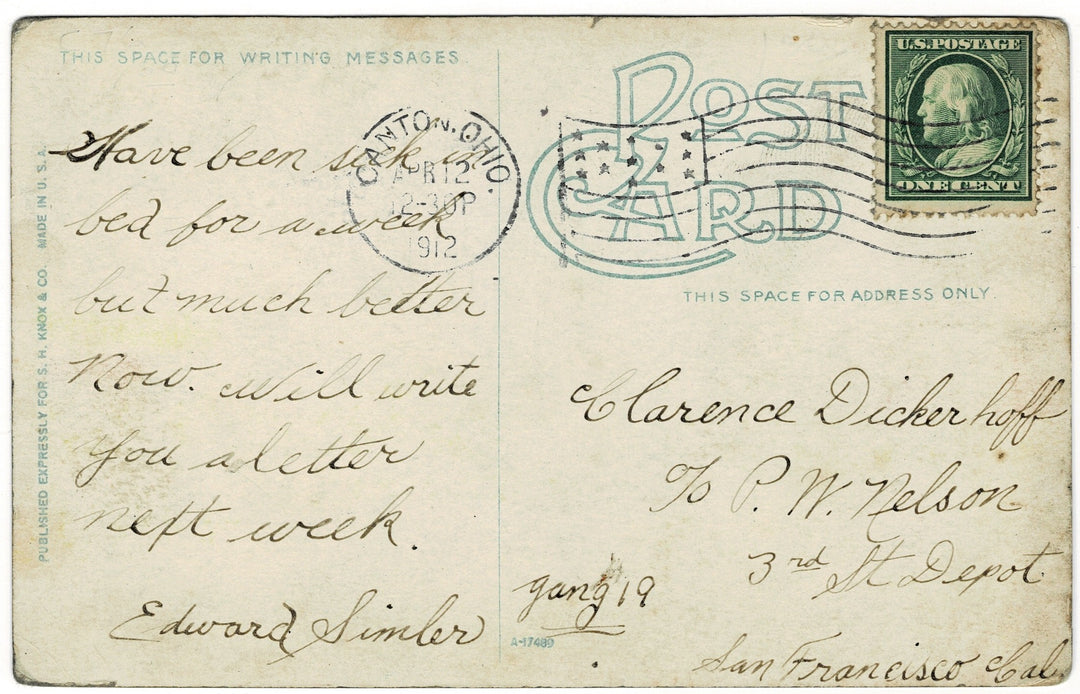 THIS SPACE FOR WRITING MESSAGES
Have been sick in
bed for a week
but much better
Now. Will write
you a letter
next week.
Edward Simler
PUBLISHED EXPRESSLY FOR S. H. KNOX & CO. MADE IN U. S. A.
CANTON, OHIO.
APR 12
12-30P
1912
POST
CARD
U.S. POSTAGE
ONE CENT
THIS SPACE FOR ADDRESS ONLY.
Clarence Dickerhoff
To P. W. Nelson
3rd St Depot
San Francisco Cal
gang 19
A-17489